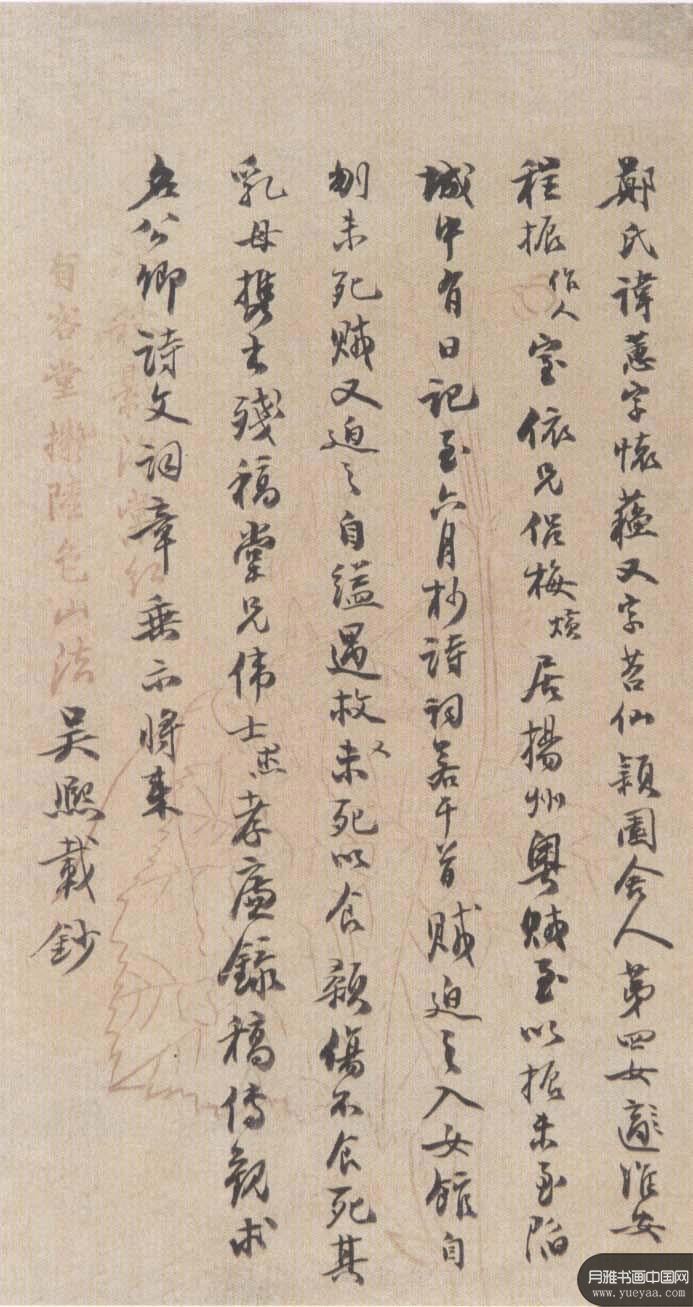 鄭氏諱蕙字懷蘊又字苕仙穎園舍人第四女適淮安
程振作人室依兄侶梅居揚州粵賊至以振未至陷
城中有日記至六月杪詩詞若干首賊迫之入女館自
刎未死賊又迫之自縊遇救又未死以食顙傷不食死其
乳母攜出殘稿堂兄偉士孝廉錄稿傳觀求
名公卿詩文詞章垂示將來
吳熙載鈔
有容堂擬陸包山法
月雅书画中国网
www.yueyaa.com